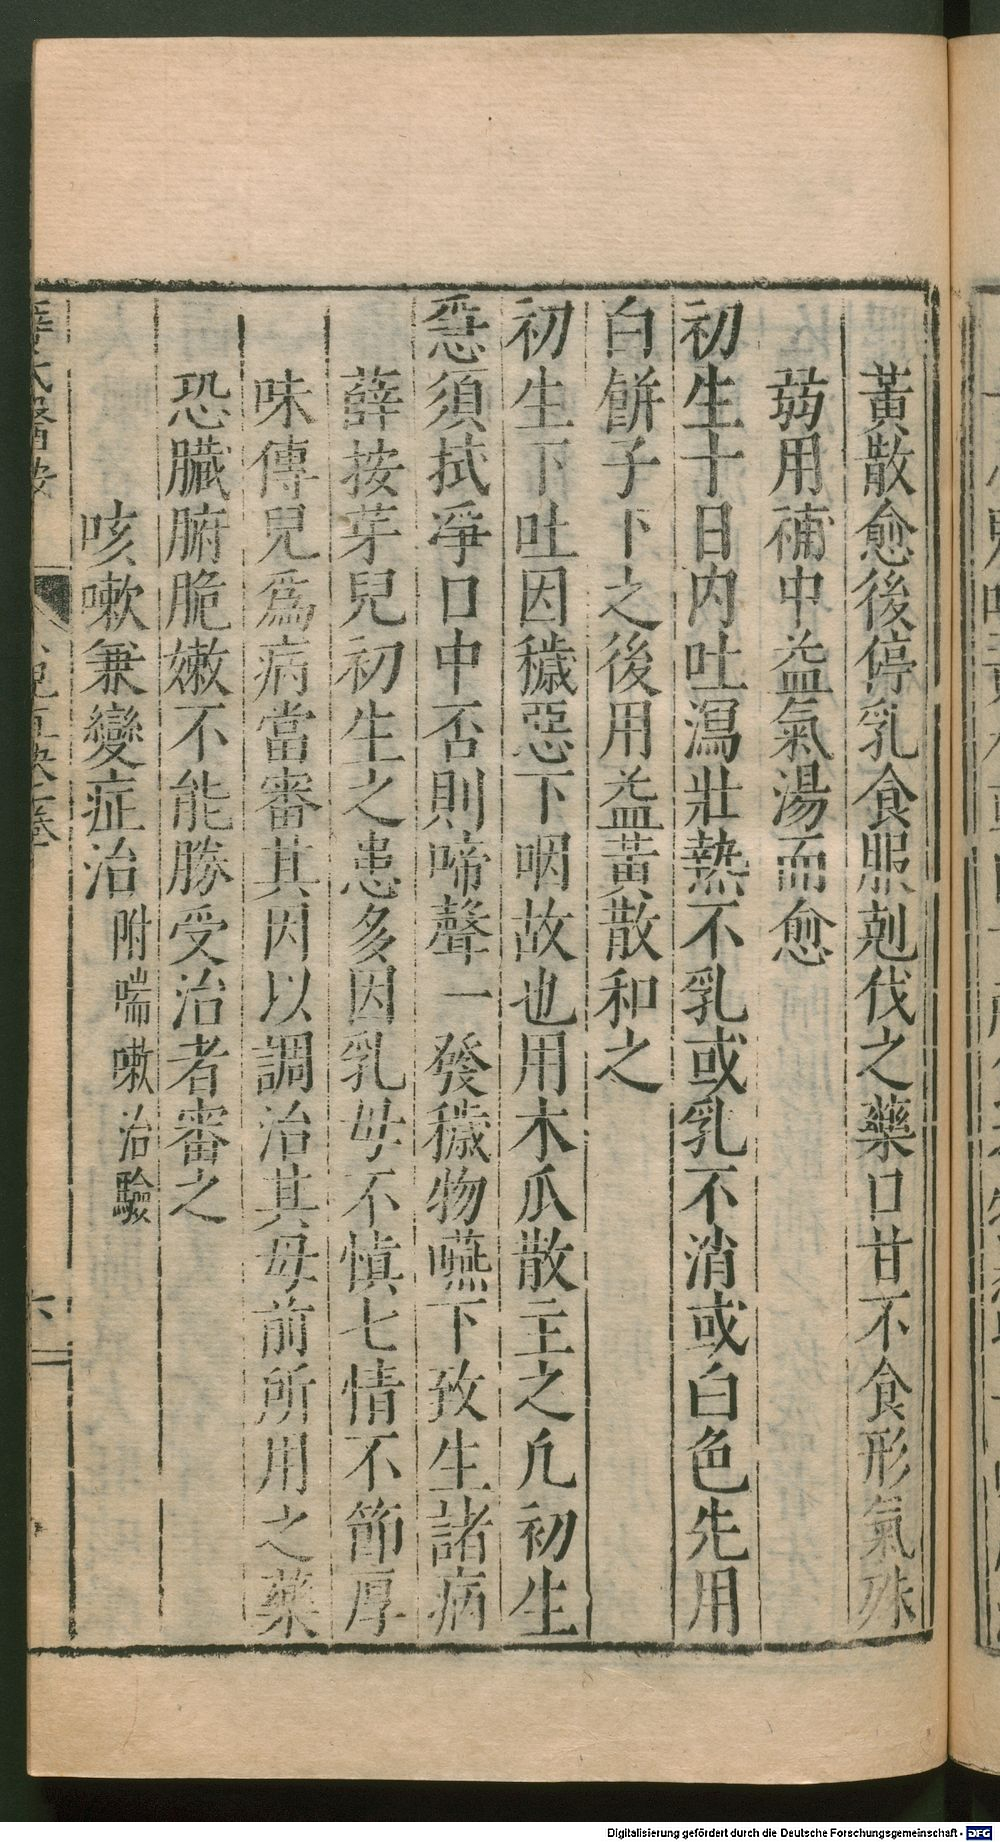 黃散愈後停乳食服剋伐之藥口甘不食形氣殊
弱用補中益氣湯而愈
初生十日内吐瀉壯熱不乳或乳不消或白色先用
白餅子下之後用益黃散和之
初生下吐因穢惡下咽故也用木瓜散主之凡初生
急須拭淨口中否則啼聲一發穢物嚥下致生諸病
薛按芽兒初生之患多因乳母不慎七情不節厚
味傳兒爲病當審其因以調治其母前所用之藥
恐臟腑脆嫩不能勝受治者審之
咳嗽兼變症治 附喘嗽治驗
六
Digitalisierung gefördert durch die Deutsche Forschungsgemeinschaft - DFG